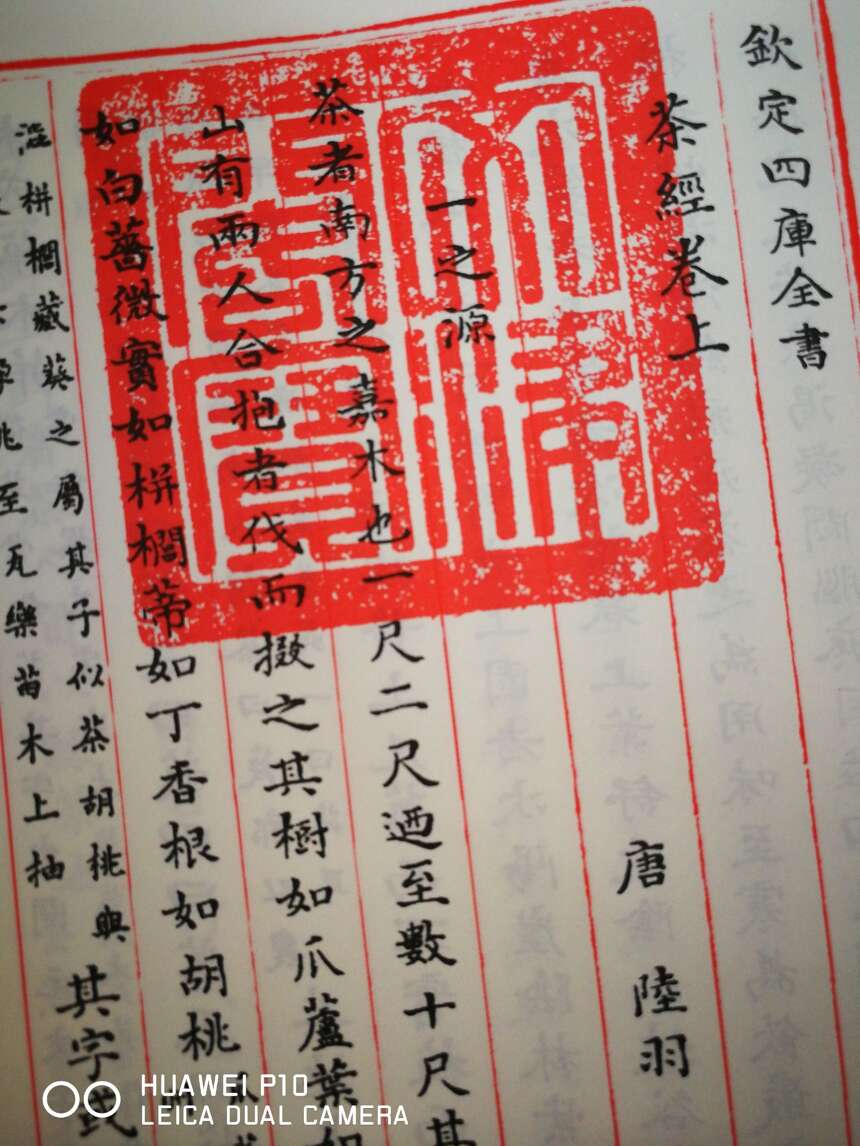 欽定四庫全書
茶經卷上
唐 陸羽
一之源
茶者南方之嘉木也一尺二尺迺至數十尺其
山有兩人合抱者伐而掇之其樹如爪蘆葉如
如白薔薇實如栟櫚蒂如丁香根如胡桃
澁栟櫚藏葵之屬其子似茶胡桃與
至瓦礫苗木上抽
其字或
文淵閣寶
HUAWEI P10
LEICA DUAL CAMERA